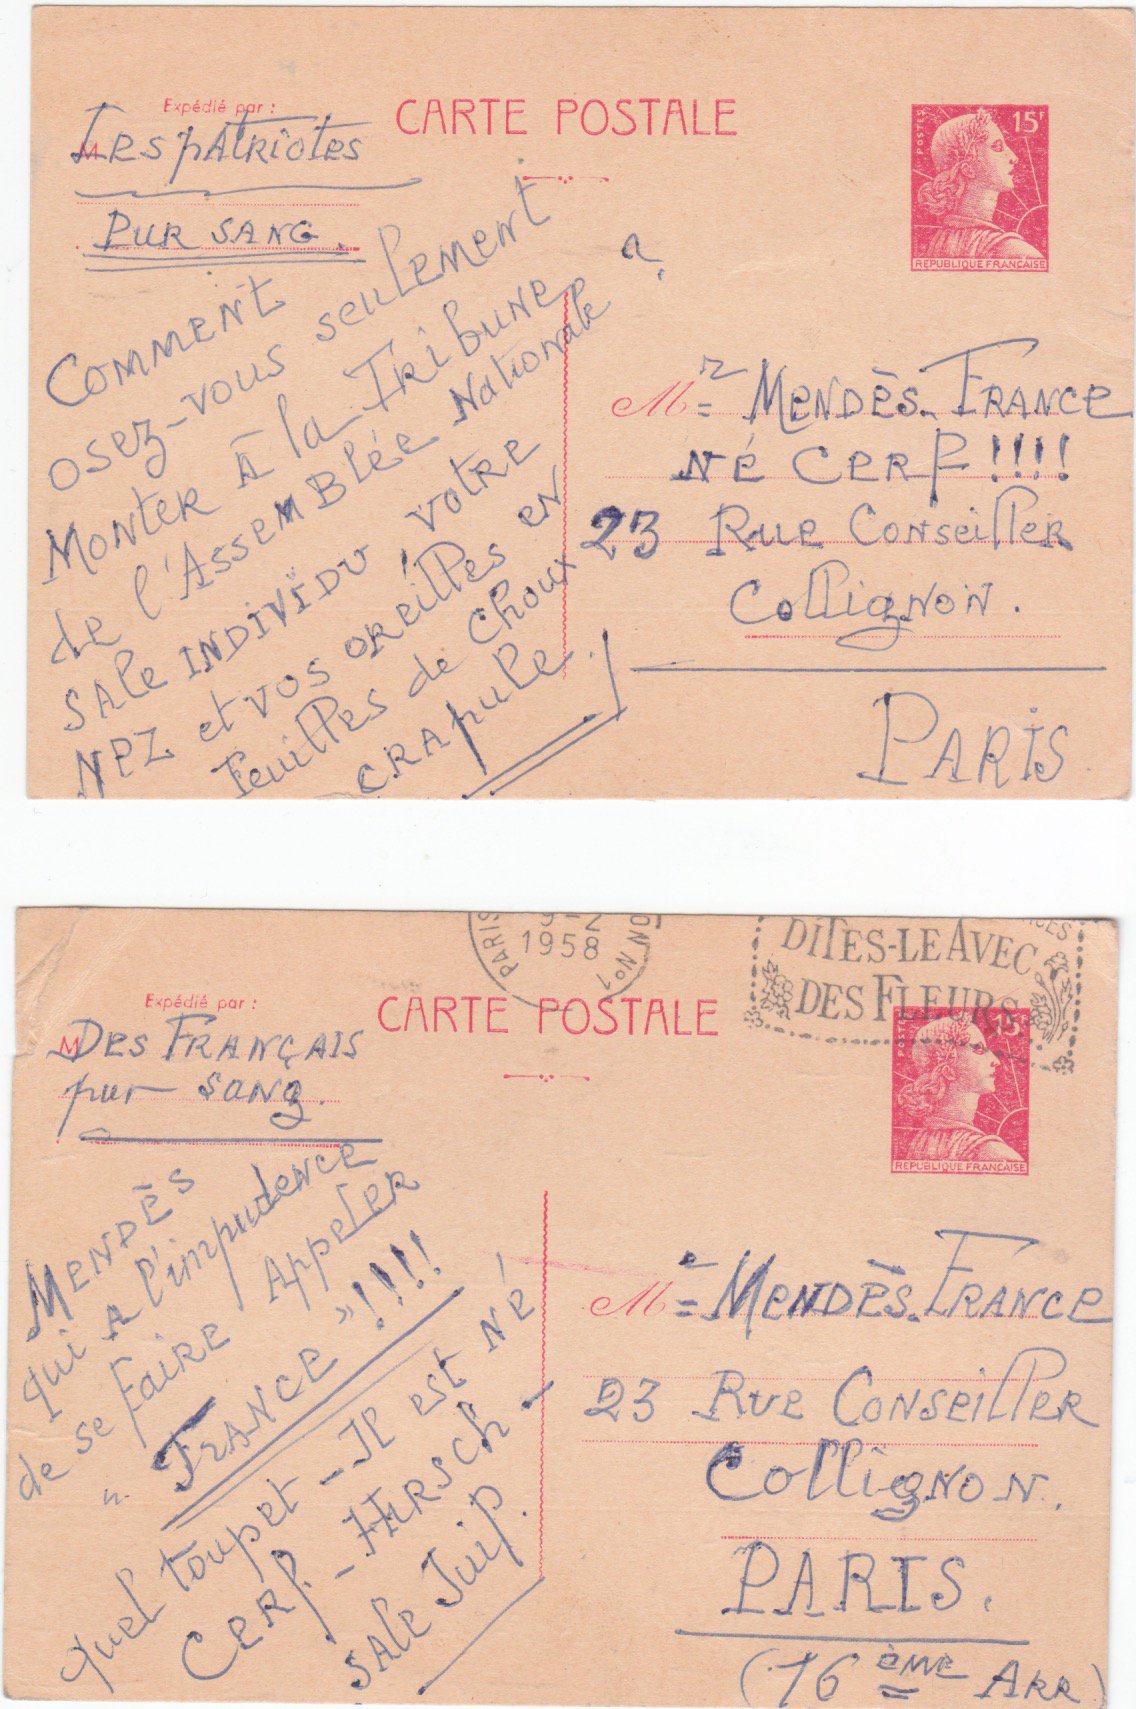 Expédié par :
CARTE POSTALE
POSTES
15F
RÉPUBLIQUE FRANÇAISE
M Les pATRiotes
PUR SANG.
COMMENT
osez-vous seulement
MONTER À la TRIBUNE
de l'ASSEMBLÉE NATIONALE ?
SALE INDIVIDU ! VOTRE
NEZ et vos OREILLES EN
FEUILLES de CHOUX
CRAPULE !
Mr MENDÈS-FRANCE
NÉ CERF !!!!
23 Rue Conseiller
Collignon.
PARIS
PARIS
9-2
1958
ON No1
DITES-LE AVEC
DES FLEURS
Expédié par :
CARTE POSTALE
POSTES
15F
RÉPUBLIQUE FRANÇAISE
M Des FRANÇAIS
pur SANG.
MENDÈS
qui A l'impudence
de se FAIRE Appeler
" FRANCE "!!!!
Quel toupet - Il est NÉ
CERF - HERSCH -
SALE Juif.
Mr MENDÈS-FRANCE
23 Rue Conseiller
Collignon.
PARIS.
(16ème ARR)